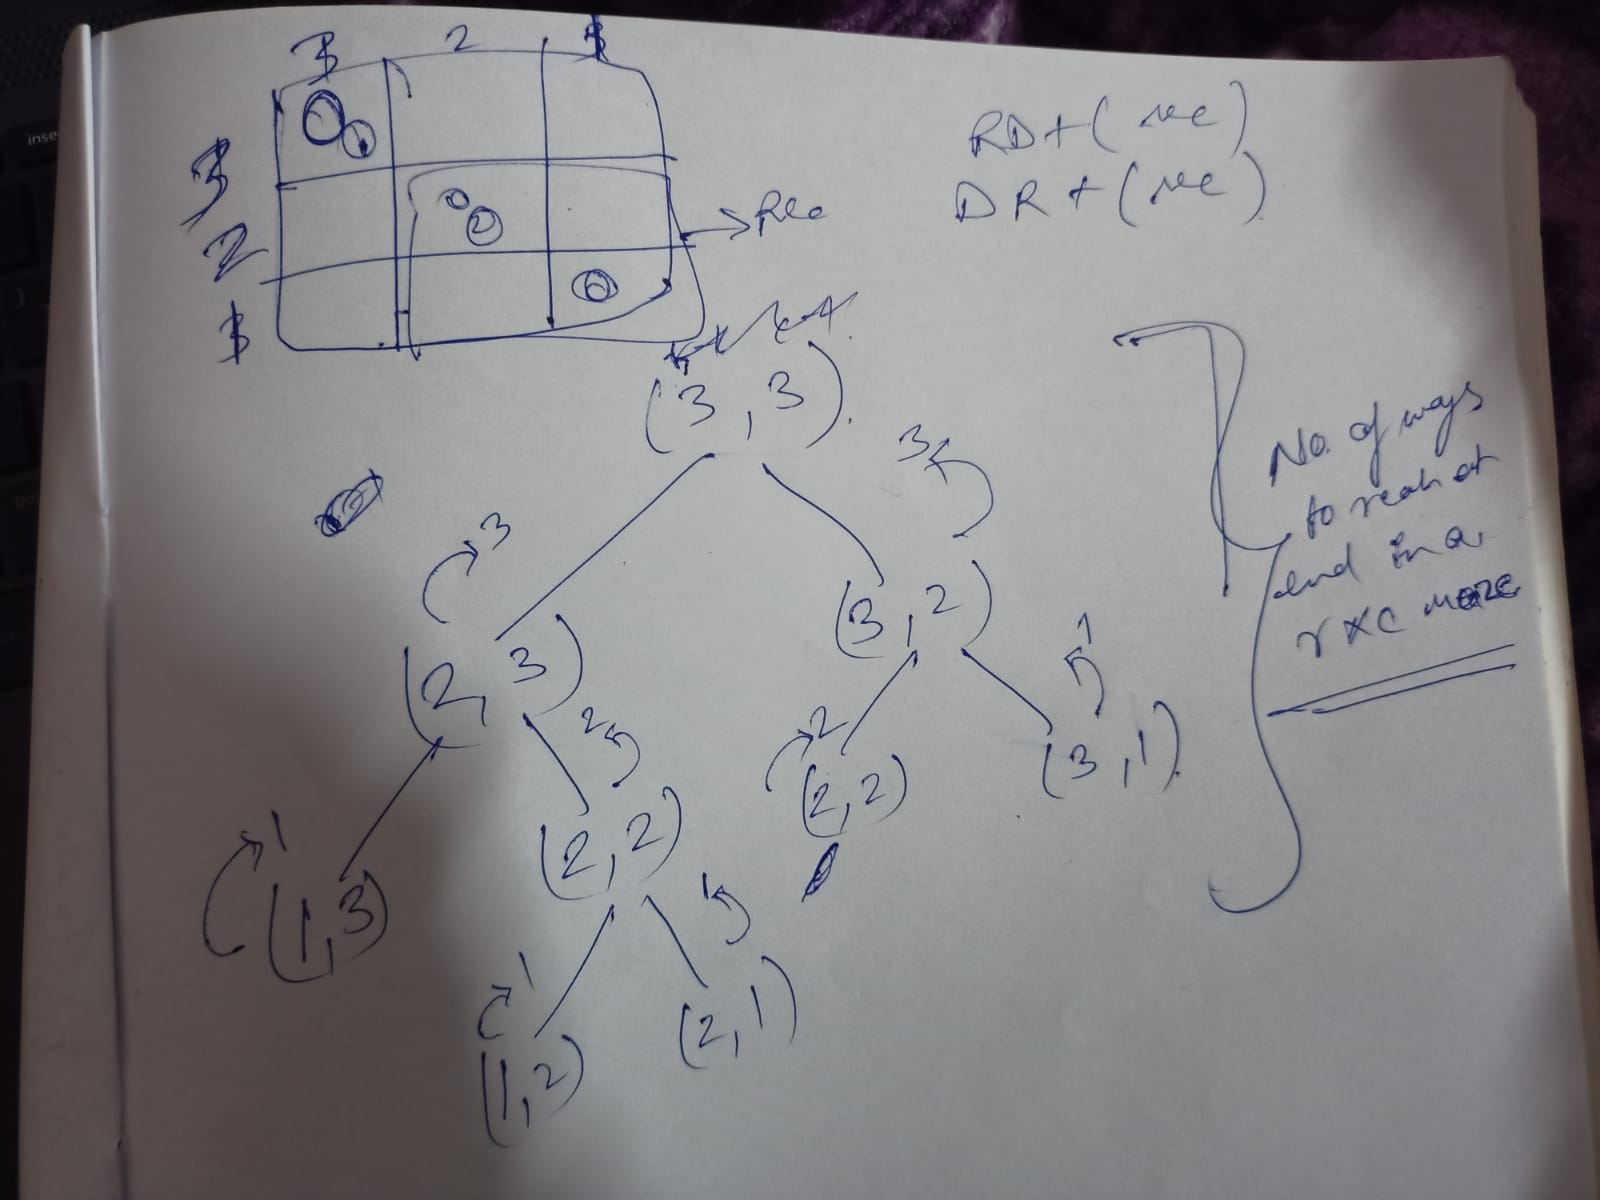 3 2 1
3
2
1
→ Rec
RD + (rec)
DR + (rec)
(3,3)
3
3
(2,3)
(3,2)
2
2
1
(2,2)
(2,2)
(3,1)
1
(1,3)
1
1
(1,2)
(2,1)
No. of ways
to reach at
end in a
r×c maze